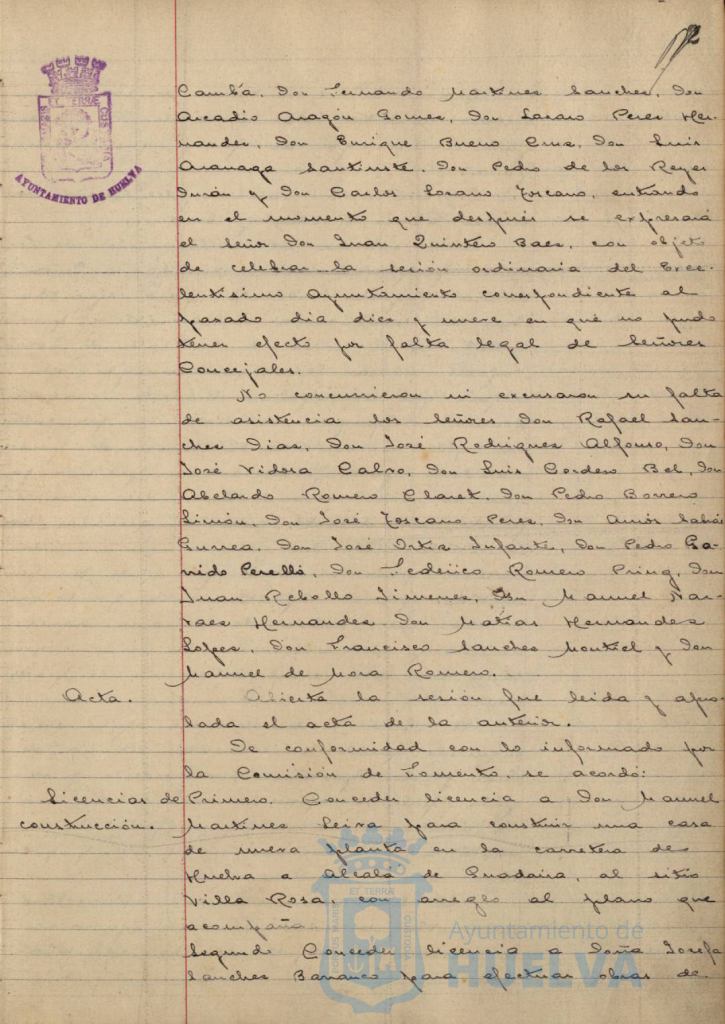 2
Cambá, Don Fernando Martinez Sanchez, Don
Arcadio Aragón Gomez, Don Lazaro Perez Her-
nandez, Don Enrique Bueno Cruz, Don Luis
Aranaga Santiuste, Don Pedro de los Reyes
Durán y Don Carlos Lozano Toscano, entrando
en el momento que después se expresará
el señor Don Juan Quintero Baez, con objeto
de celebrar la sesión ordinaria del Exce-
lentísimo Ayuntamiento correspondiente al
pasado dia diez y nueve en que no pudo
tener efecto por falta legal de Señores
Concejales.
No concurrieron ni excusaron su falta
de asistencia los señores Don Rafael San-
chez Diaz, Don José Rodriguez Alfonso, Don
José Vidosa Calvo, Don Luis Cordero Bel, Don
Abelardo Romero Claret, Don Pedro Borrero
Limón, Don José Toscano Perez, Don Amós Sabrás
Gurrea, Don José Ortiz Infante, Don Pedro Ga-
rrido Perelló, Don Federico Romero Pring, Don
Juan Rebollo Jimenez, Don Manuel Nar-
vaez Hernandez Don Matías Hernandez
Lopez, Don Francisco Sanchez Montiel y Don
Manuel de Mora Romero.
Acta.
Abierta la sesión fue leida y apro-
bada el acta de la anterior.
De conformidad con lo informado por
la Comisión de Fomento, se acordó:
Licencias de construcción.
Primero. Conceder licencia a Don Manuel
Martinez Leira para construir una casa
de nueva planta en la carretera de
Huelva a Alcalá de Guadaira, al sitio
Villa Rosa, con arreglo al plano que
acompaña
Segundo Conceder licencia a Doña Josefa
Sanchez Barranco para efectuar obras de
ET TERRÆ
AYUNTAMIENTO DE HUELVA
ET TERRÆ
CUSTODIA
Ayuntamiento de
HUELVA